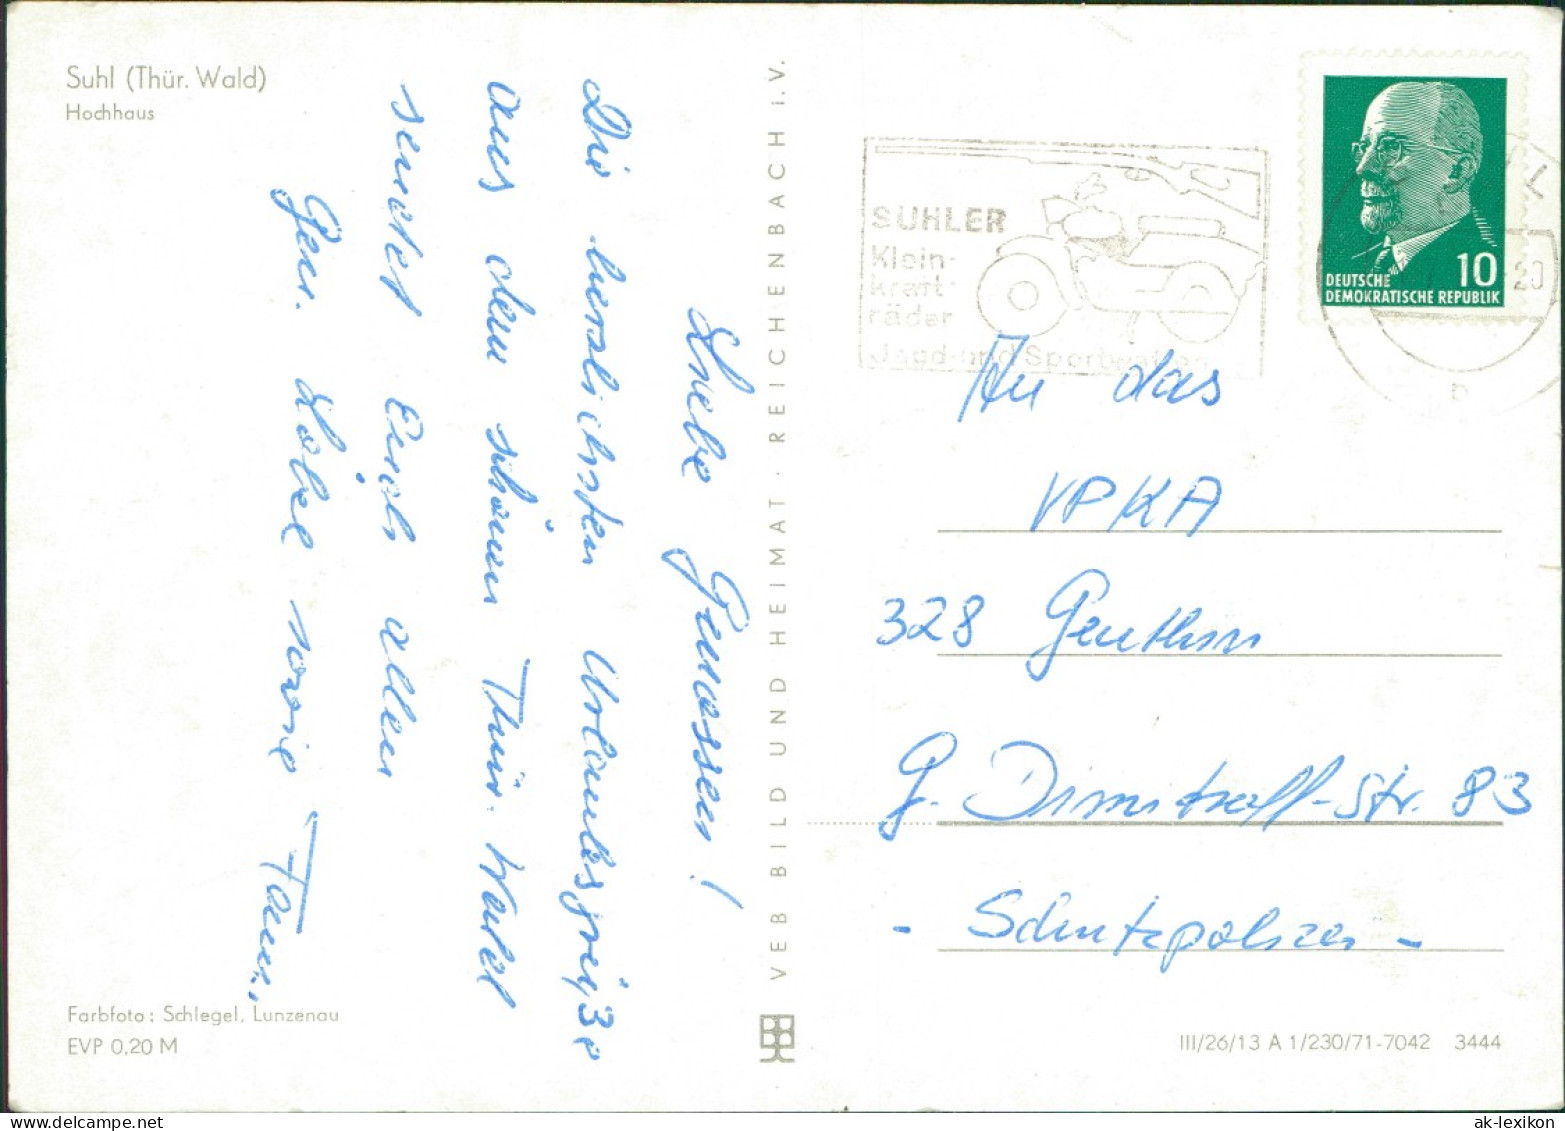 Suhl (Thür. Wald)
Hochhaus
Liebe Genossen!
Die herzlichsten Urlaubsgrüße
aus dem schönen Thür. Wald
sendet Euch allen
Gen. Löbel sowie Fam.
Farbfoto: Schlegel, Lunzenau
EVP 0,20 M
VEB BILD UND HEIMAT · REICHENBACH i. V.
SUHLER
Klein-
kraft-
räder
Jagd- und Sportwaffen
10
DEUTSCHE
DEMOKRATISCHE REPUBLIK
20
An das
VPKA
328 Genthin
G. Dimitroff-Str. 83
- Schutzpolizei -
III/26/13 A 1/230/71-7042 3444
ak-lexikon